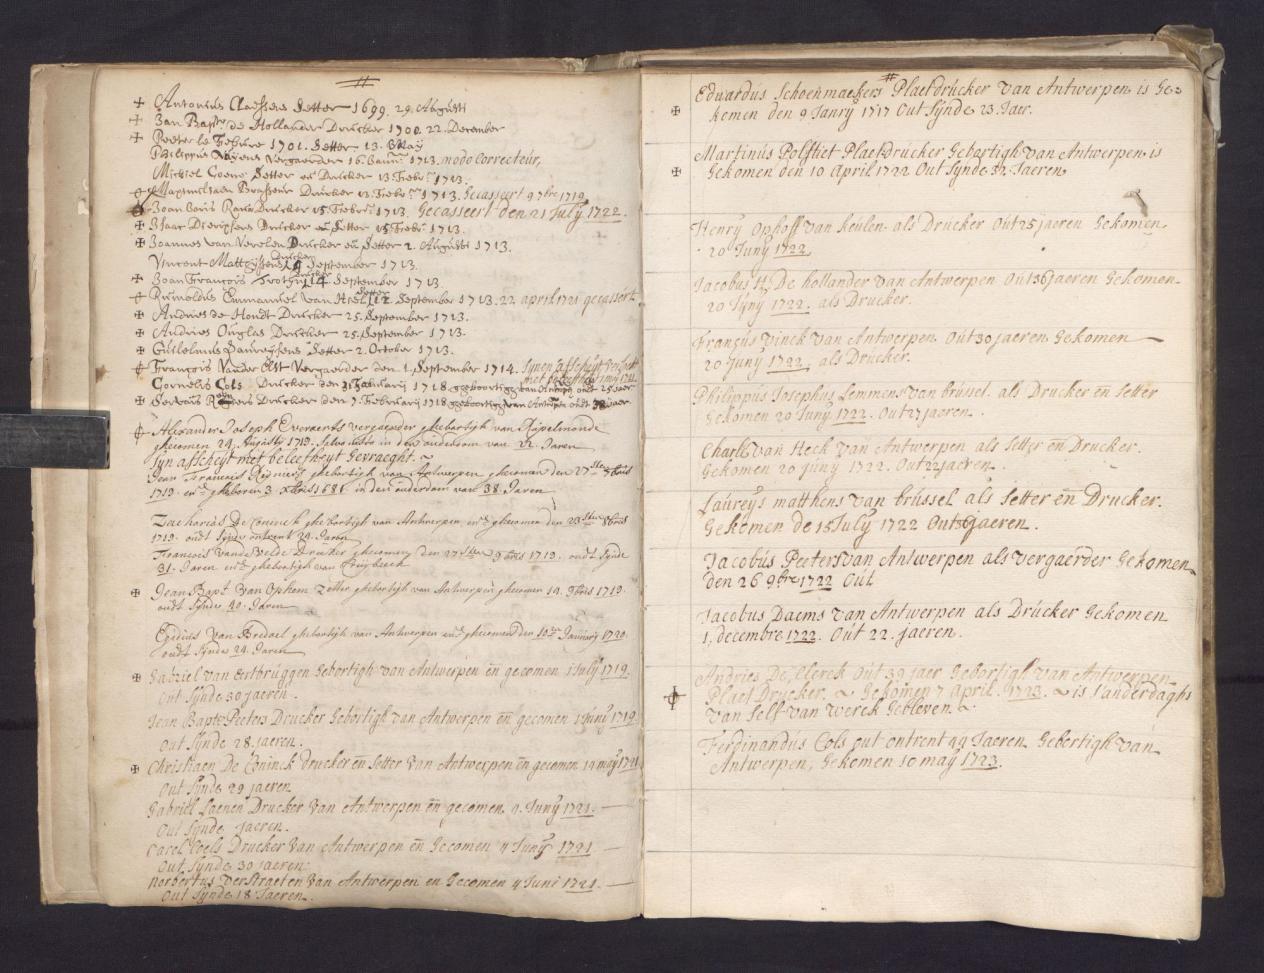 Antonius Claessens Setter 1699. 29. Augusti
Jan Bapt. de Hollander Drucker 1700. 22. December
Peeter le Febure 1701. Setter 13. May
Philippus Vergaender 16. 1713. modo Correcteur,
Michiel Coene Setter en Drucker 13 Febr. 1713.
Maximiliaen Drucker 13. Febr. 1713. Gecasseert 9 7bre 1719
Joan Drucker 15. Febr. 1713. Gecasseert den 21 July 1722.
Isaac Drucker en Setter 15 Febr. 1713.
Joannes van Drucker en Setter 2. Augusti 1713.
Vincent 19 September 1713.
Joan François 14 September 1713.
Rumoldus Emmanuel van 12 September 1713. 22 april 1721 gecassert
Andries de Hondt Drucker 25. September 1713.
Andries Drucker 25. September 1713.
Guilelmus Setter 2. October 1713.
François Vander Elst Vergaender den 1. September 1714. synen affscheyt
Cornelis Cols Drucker den 1718. gegeboortigh van Antwerpen oudt 25 Jaer
Drucker den 7. February 1718 gegeboortigh van Antwerpen oudt Jaer
Alexander Joseph Everaerts vergaender ghebortigh van Rupelmonde
ghecomen 24. Augusty 1719. in den ouderdom van 22. Jaren
syn affscheyt met beleeftheyt Gevraeght.
Jean Francois ghebortigh van Antwerpen ghecomen den 27
1719. ende gheboren 3 1681 in den ouderdom van 38. Jaren
Zacharias De Coninck ghebortigh van Antwerpen ende ghecomen den 28
1719. oudt synde ontrent 24. Jaren
Francois vande Velde Drucker ghecomen den 27 1719. oudt synde
31. Jaren ende ghebortigh van Cruybeeck
Jean Bapt. Van Ophem Zetter ghebortigh van Antwerpen ghecomen 14. 1719.
oudt synde 40. Jaren
Egidius Van Bredael ghebortigh van Antwerpen ende ghecomen den 10 January 1720.
oudt synde 24. Jaren
Gabriel van Eertbruggen Gebortigh van Antwerpen en gecomen 1 July 1719.
Out Synde 30 jaeren.
Jean Bapte Peeters Drucker Gebortigh van Antwerpen en gecomen 1 Juny 1719
Out Synde 28. jaeren.
Christiaen De Coninck drucker en Setter van Antwerpen en gecomen 14 may 1721
Out Synde 29 jaeren
Gabriel Laenen Drucker van Antwerpen en gecomen 9. Juny 1721.
Out Synde jaeren.
Carel Coels Drucker van Antwerpen en Gecomen 4 Juny 1721
Out Synde 30 jaeren.
Norbertus Verstraeten van Antwerpen en Gecomen 4 Juni 1721.
Out Synde 18 Jaeren.
Eduardus Schoenmaekers Plaetdrucker van Antwerpen is Ge=
komen den 9 Janry 1717 Out Synde 23. Jaer.
Martinus Polstiet Plaetdrucker Gebortigh van Antwerpen is
Gekomen den 10 April 1722 Out Synde 32. Jaeren
Henry Ophoff van keulen als Drucker Out 25 jaeren Gekomen
20 Juny 1722.
Jacobus H. De hollander van Antwerpen Out 36 jaeren Gekomen
20 Juny 1722. als Drucker.
Françus Vinck van Antwerpen Out 30 jaeren Gekomen
20 Juny 1722, als Drucker.
Philippus Josephus Lemmens van brussel als Drucker en Setter
Gekomen 20 Juny 1722. Out 27 jaeren.
Charls van Heck van Antwerpen als Setter en Drucker.
Gekomen 20 juny 1722. Out 22 jaeren.
Laureys matthens van brussel als Setter en Drucker.
Gekomen de 15 July 1722 Out 36 jaeren.
Jacobus Peeters van Antwerpen als vergaerder Gekomen
den 26 9bre 1722 Out
Jacobus Daems van Antwerpen als Drucker Gekomen
1, decembre 1722. Out 22. jaeren.
Andries De Clerck Out 39 jaer Gebortigh van Antwerpen
Plaet Drucker. ~ Gekomen 7 April. 1723. ~ is s'anderdaghs
van self van werck Gebleven ~
Ferdinandus Cols out ontrent 49 Jaeren Gebortigh van
Antwerpen, Gekomen 10 may 1723.